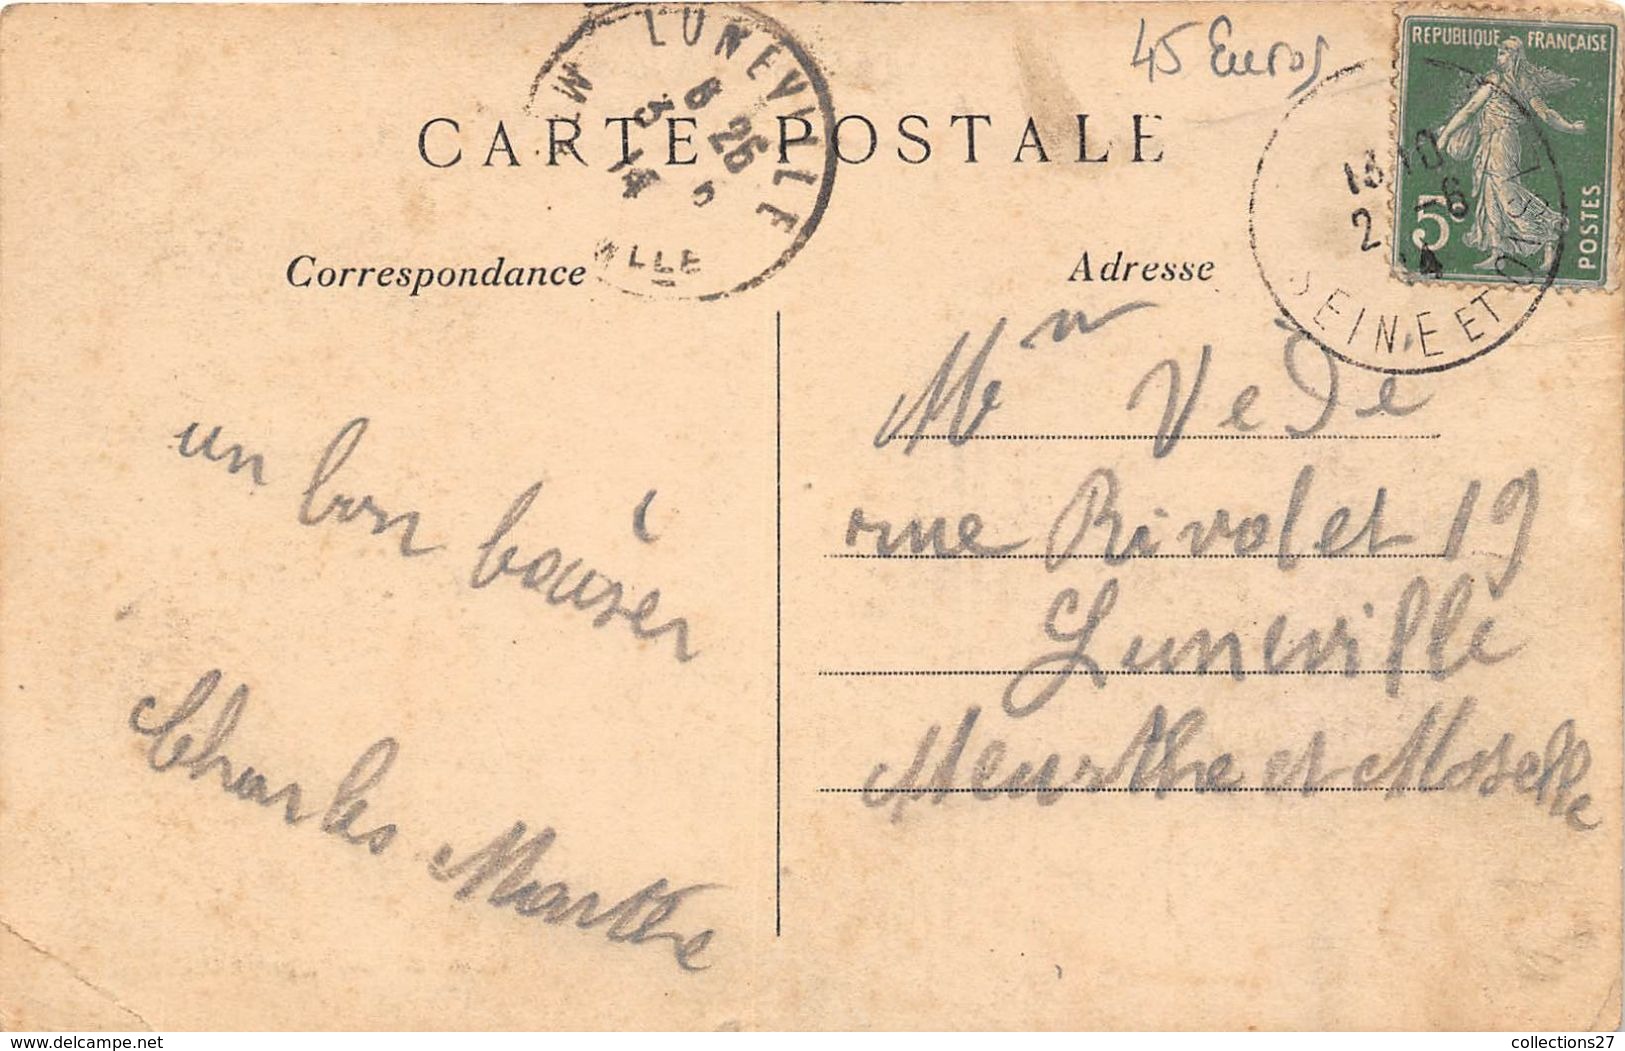 45 Euros
REPUBLIQUE FRANÇAISE
5c
POSTES
LUNEVILLE
6 26
3 6
14
Mthe
SEINE ET OISE
14
CARTE POSTALE
Correspondance
un bon baiser
Charles Marthe
Adresse
Mr Vede
rue Rivolet 19
Luneville
Meurthe et Moselle
www.delcampe.net
collections27